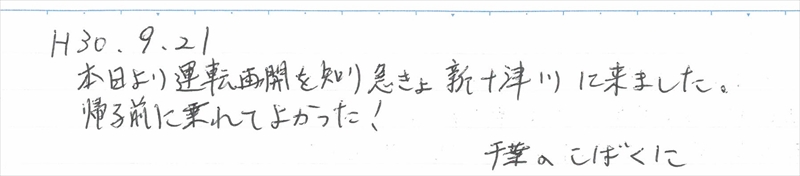 H30.9.21
本日より運転再開を知り急きょ新十津川に来ました。
帰る前に乗れてよかった!
千葉のこばくに